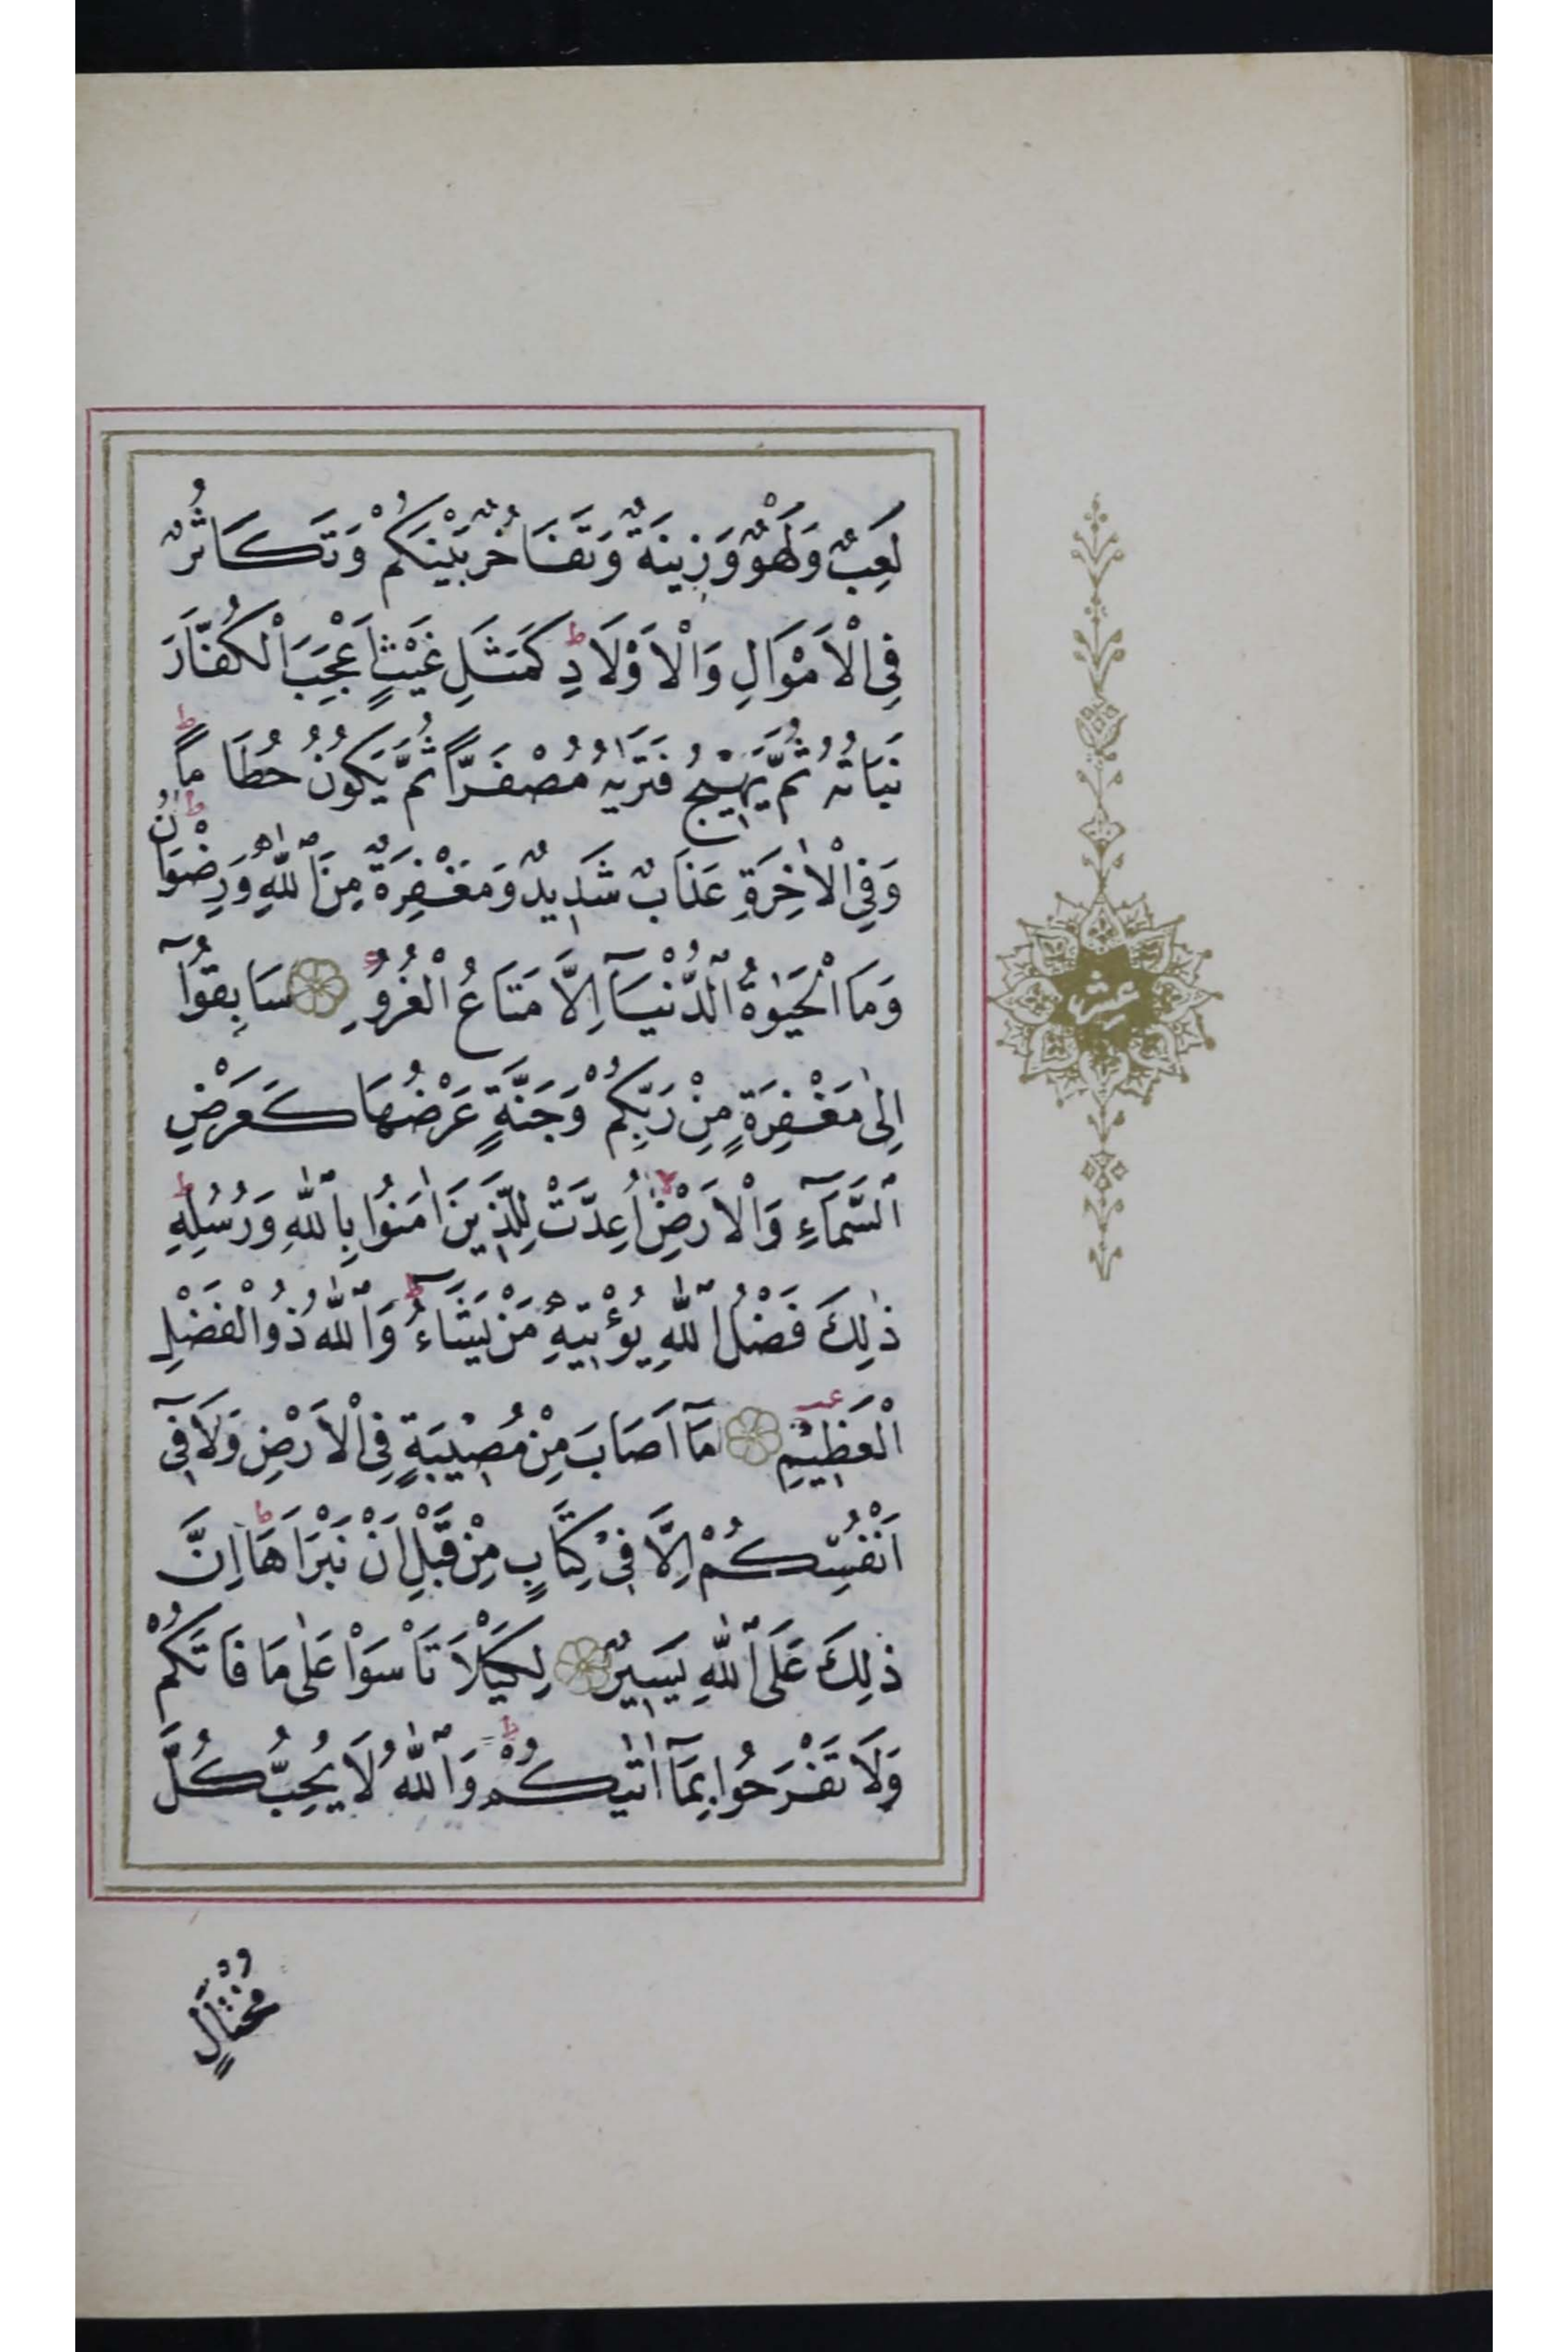 لَعِبٌ وَلَهْوٌ وَزِينَةٌ وَتَفَاخُرٌ بَيْنَكُمْ وَتَكَاثُرٌ
فِى الْاَمْوَالِ وَالْاَوْلَادِ ط كَمَثَلِ غَيْثٍ اَعْجَبَ الْكُفَّارَ
نَبَاتُهُ ثُمَّ يَهِيجُ فَتَرٰيهُ مُصْفَرًّا ثُمَّ يَكُونُ حُطَامًا ط
وَفِى الْاٰخِرَةِ عَذَابٌ شَدِيدٌ وَمَغْفِرَةٌ مِنَ اللّٰهِ وَرِضْوَانٌ ط
وَمَا الْحَيٰوةُ الدُّنْيَآ اِلَّا مَتَاعُ الْغُرُورِ سَابِقُوٓا
اِلٰى مَغْفِرَةٍ مِنْ رَبِّكُمْ وَجَنَّةٍ عَرْضُهَا كَعَرْضِ
السَّمَآءِ وَالْاَرْضِ لا اُعِدَّتْ لِلَّذِينَ اٰمَنُوا بِاللّٰهِ وَرُسُلِهِ ط
ذٰلِكَ فَضْلُ اللّٰهِ يُؤْتِيهِ مَنْ يَشَآءُ ط وَاللّٰهُ ذُو الْفَضْلِ
الْعَظِيمِ مَآ اَصَابَ مِنْ مُصِيبَةٍ فِى الْاَرْضِ وَلَا فِىٓ
اَنْفُسِكُمْ اِلَّا فِى كِتَابٍ مِنْ قَبْلِ اَنْ نَبْرَاَهَا ط اِنَّ
ذٰلِكَ عَلَى اللّٰهِ يَسِيرٌ لِكَيْلَا تَاْسَوْا عَلٰى مَا فَاتَكُمْ
وَلَا تَفْرَحُوا بِمَآ اٰتٰيكُمْ ط وَاللّٰهُ لَا يُحِبُّ كُلَّ
مُخْتَالٍ
عشر